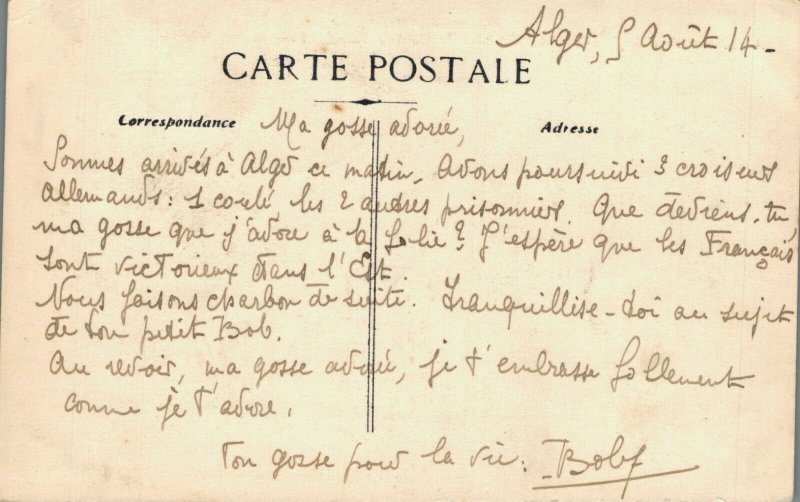 Alger, 5 Août 14 -
CARTE POSTALE
Correspondance
Adresse
Ma gosse adorée,
Sommes arrivés à Alger ce matin. Avons poursuivi 3 croiseurs
allemands : 1 coulé les 2 autres prisonniers. Que deviens-tu
ma gosse que j'adore à la folie ? J'espère que les Français
sont victorieux dans l'Est.
Nous faisons charbon de suite. Tranquillise-toi au sujet
de ton petit Bob.
Au revoir, ma gosse adorée, je t'embrasse follement
comme je t'adore.
Ton gosse pour la vie :